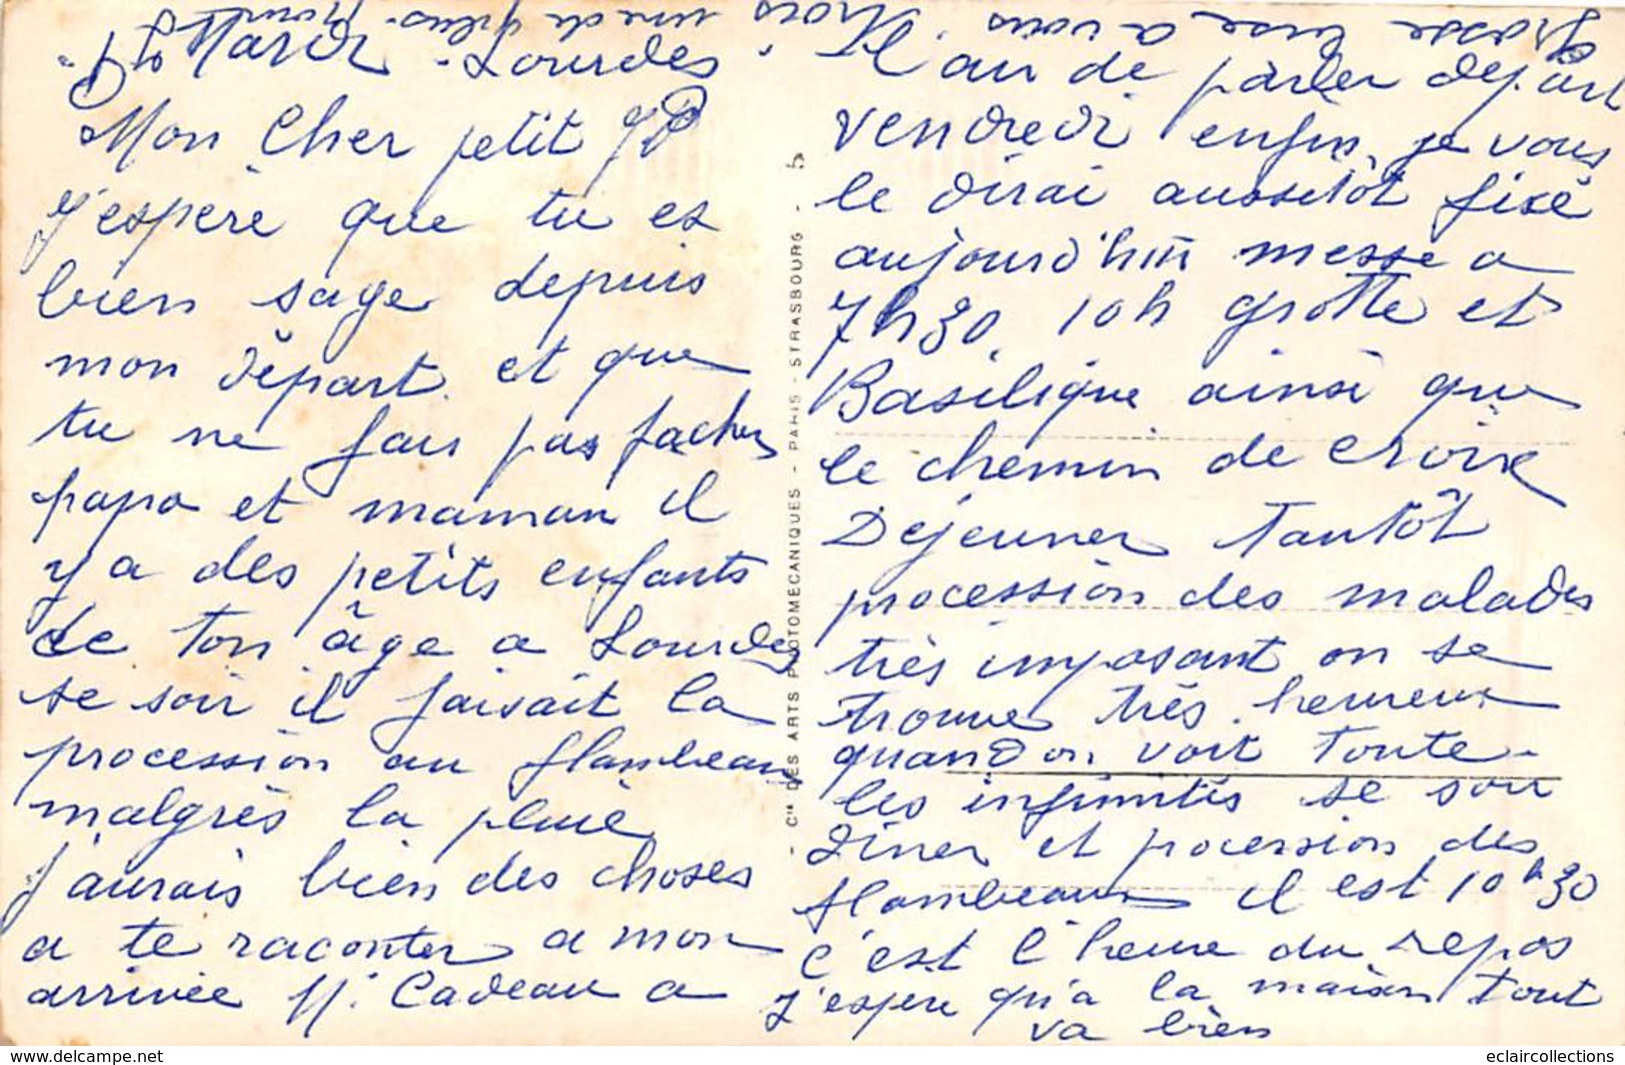 Mardi - Lourdes
Mon Cher petit JP
J'espère que tu es
bien sage depuis
mon départ. et que
tu ne fais pas facher
papa et maman il
y a des petits enfants
de ton âge a Lourdes
se soir il faisait la
procession au flambeau
malgrès la pluie
j'aurais bien des choses
a te raconter a mon
arrivée M. Cadeau a
l'air de parler départ
vendredi enfin, je vous
le dirai aussitôt fixé
aujourd'hui messe a
7h30, 10h grotte et
Basilique ainsi que
le chemin de croix
Déjeuner Tantôt
procession des malades
très imposant on se
trouve très heureux
quand on voit toute
les infirmités se soir
diner et procession des
flambeaux il est 10h30
c'est l'heure du repos
J'espere qu'a la maison tout
va bien
grosse bise a vous trois
une de plus
CIE DES ARTS PHOTOMECANIQUES - PARIS - STRASBOURG - 5
www.delcampe.net
eclaircollections